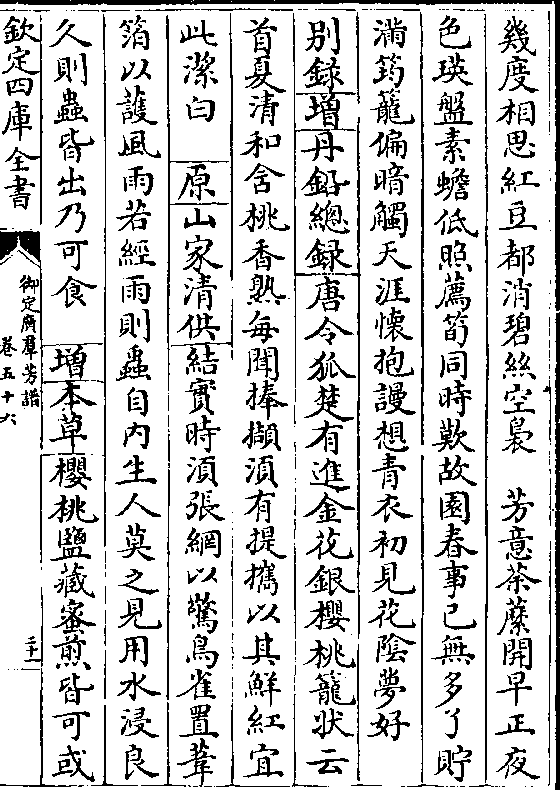 幾度相思紅豆都消碧絲空裊　芳意荼蘼開早正夜
色瑛盤素蟾低照薦筍同時歎故園春事已無多了貯
滿筠籠偏暗觸天涯懷抱謾想青衣初見花陰夢好
別錄增丹鉛總錄唐令狐楚有進金花銀櫻桃籠狀云
首夏清和含桃香熟每聞捧擷須有提攜以其鮮紅宜
此潔白　原山家清供結實時須張網以驚鳥雀置葦
箔以護風雨若經雨則蟲自内生人莫之見用水浸良
久則蟲皆出乃可食　增本草櫻桃鹽藏蜜煎皆可或
欽定四庫全書
御定廣羣芳譜
卷五十六
二十一